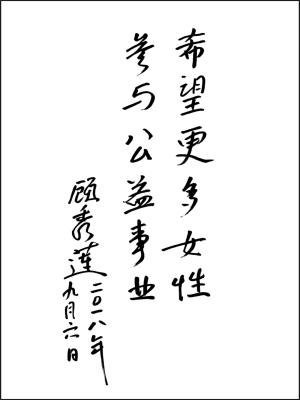 希望更多女性
参与公益事业
顾秀莲
二〇一八年
九月六日